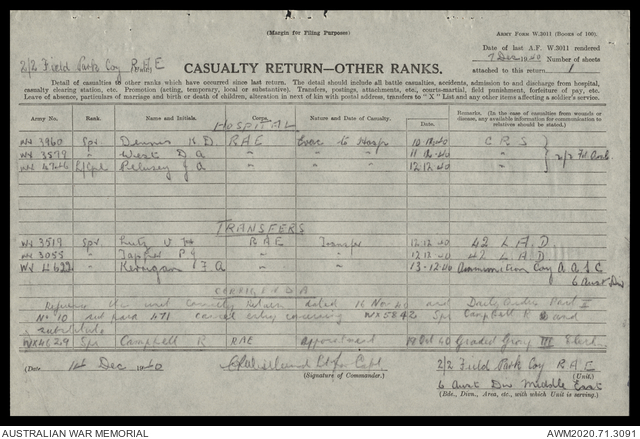 (Margin for Filing Purposes)
ARMY FORM W.3011 (BOOKS OF 100).
Date of last A.F. W.3011 rendered
7 Dec 1940 Number of sheets
2/2 Field Park Coy RAE
attached to this return 1
CASUALTY RETURN—OTHER RANKS.
Detail of casualties to other ranks which have occurred since last return. The detail should include all battle casualties, accidents, admission to and discharge from hospital,
casualty clearing station, etc. Promotion (acting, temporary, local or substantive). Transfers, postings, attachments, etc., courts-martial, field punishment, forfeiture of pay, etc.
Leave of absence, particulars of marriage and birth or death of children, alteration in next of kin with postal address, transfers to "X" List and any other items affecting a soldier's service.
Army No. Rank. Name and Initials. Corps. Nature and Date of Casualty. Date. Remarks. (In the case of casualties from wounds or disease, any available information for communication to relatives should be stated.)
HOSPITAL
3960 Spr. K D RAE Evac to Hosp 10 12 40 C R S
3579 " West D A " " 11 12 40 " 2/2 Fd Amb
L/Cpl J A " " 12 12 40 "
TRANSFERS
3519 Spr. Lutz V RAE Transfer 12 12 40 42 L A D
3055 " P J " " 12 12 40 42 L A D
" Kerrigan F A " " 13-12-40 Ammunition Coy A A S C
6 Aust Div
CORRIGENDA
Casualty Return dated 16 Nov 40 and Part II
No 10 and para 471 cancel entry concerning WX5842 Spr Campbell R and
substitute
WX4629 Spr Campbell R RAE Appointment Oct 40 Graded Group III Clerk
(Date) 14 Dec 1940 Capt 2/2 Field Park Coy RAE
(Signature of Commander.) (Unit.)
6 Aust Div Middle East
(Bde., Divn., Area, etc., with which Unit is serving.)
AUSTRALIAN WAR MEMORIAL AWM2020.71.3091